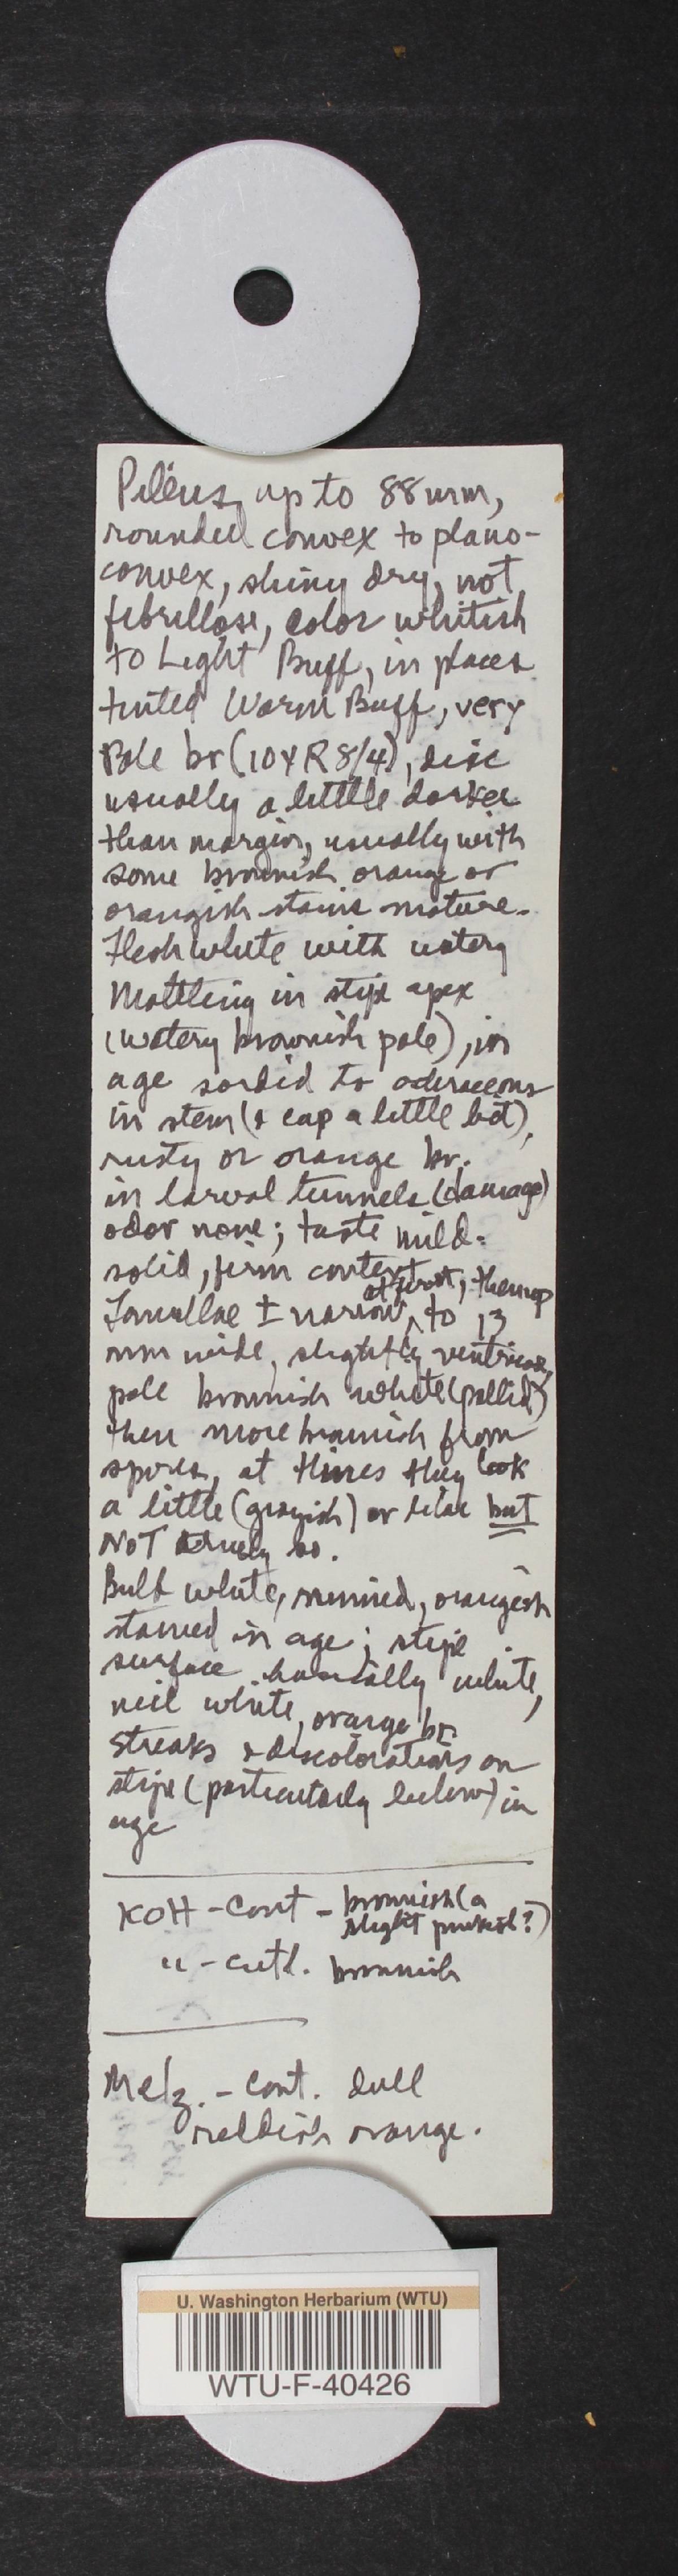 Pileus up to 88 mm,
rounded convex to plano-
convex, shiny dry, not
fibrillose, color whitish
to Light Buff, in places
tinted Warm Buff, very
Pale br (10YR 8/4), disc
usually a little darker
than margin, usually with
some brownish orange or
orangish stains mature.
Flesh white with watery
Mottling in stipe apex
(watery brownish pale), in
age sordid to ochraceous
in stem (& cap a little bit),
rusty or orange br.
in larval tunnels (damage)
odor none; taste mild.
solid, firm context
Lamellae ± narrow at first, then up to 13
mm wide, slightly ventricose,
pale brownish white (pallid)
then more brownish from
spores, at times they look
a little (grayish) or lilac but
NOT truly so.
Bulb white, rimmed, orangish
stained in age; stipe
surface basically white,
veil white, orange br.
streaks & discolorations on
stipe (particularly below) in
age
KOH - cont - brownish (a
slight pinkish?)
" - cutl. brownish
Melz. - Cont. dull
reddish orange.
U. Washington Herbarium (WTU)
WTU-F-40426